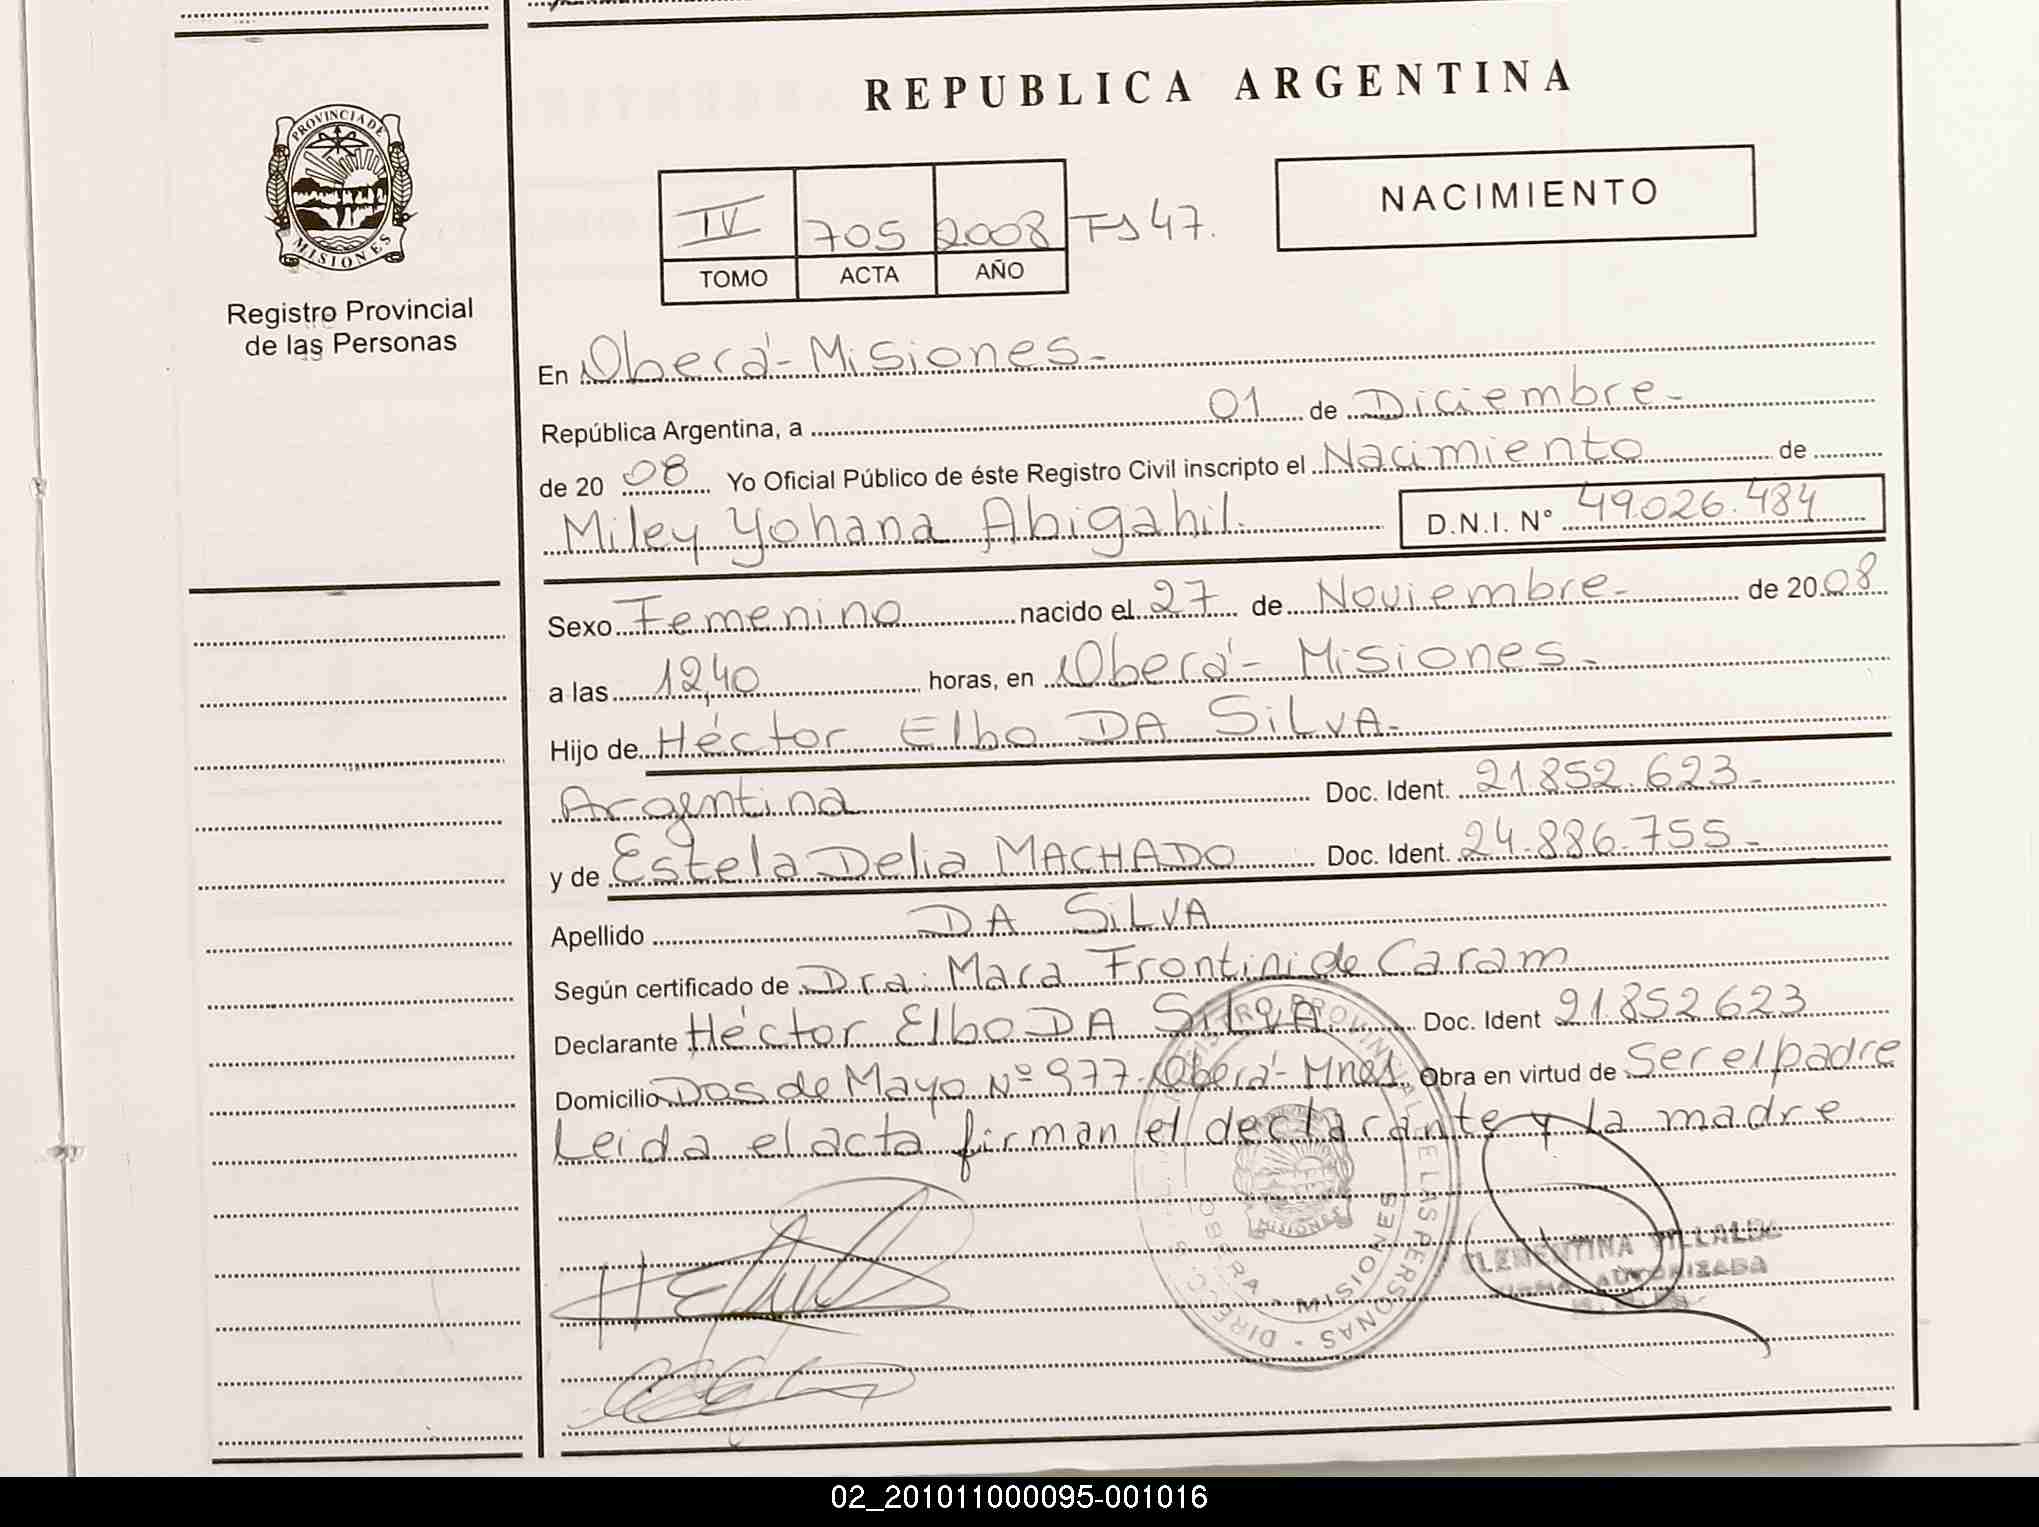 REPUBLICA ARGENTINA
PROVINCIA DE
MISIONES
Registro Provincial
de las Personas
IV 705 2008 Fs 47.
TOMO ACTA AÑO
NACIMIENTO
En Oberá - Misiones -
República Argentina, a 01 de Diciembre -
de 20 08 Yo Oficial Público de éste Registro Civil inscripto el Nacimiento de
Miley Yohana Abigahil. D.N.I. N° 49.026.484
Sexo Femenino nacido el 27 de Noviembre - de 20 08
a las 12,40 horas, en Oberá - Misiones -
Hijo de Héctor Elbo DA SiLVA -
Argentina Doc. Ident. 21.852.623 -
y de Estela Delia MACHADO Doc. Ident. 24.886.755 -
Apellido DA SiLVA
Según certificado de Dra. Mara Frontini de Caram
Declarante Héctor Elbo DA SiLVA Doc. Ident 21852623
Domicilio Dos de Mayo Nº 977 - Oberá - Mnes. Obra en virtud de Ser el padre
Leida el acta firman el declarante y la madre
REGISTRO PROVINCIAL DE LAS PERSONAS
OBERA - MISIONES
MISIONES
CLEMENTINA VILLALBA
FIRMA AUTORIZADA
02_201011000095-001016